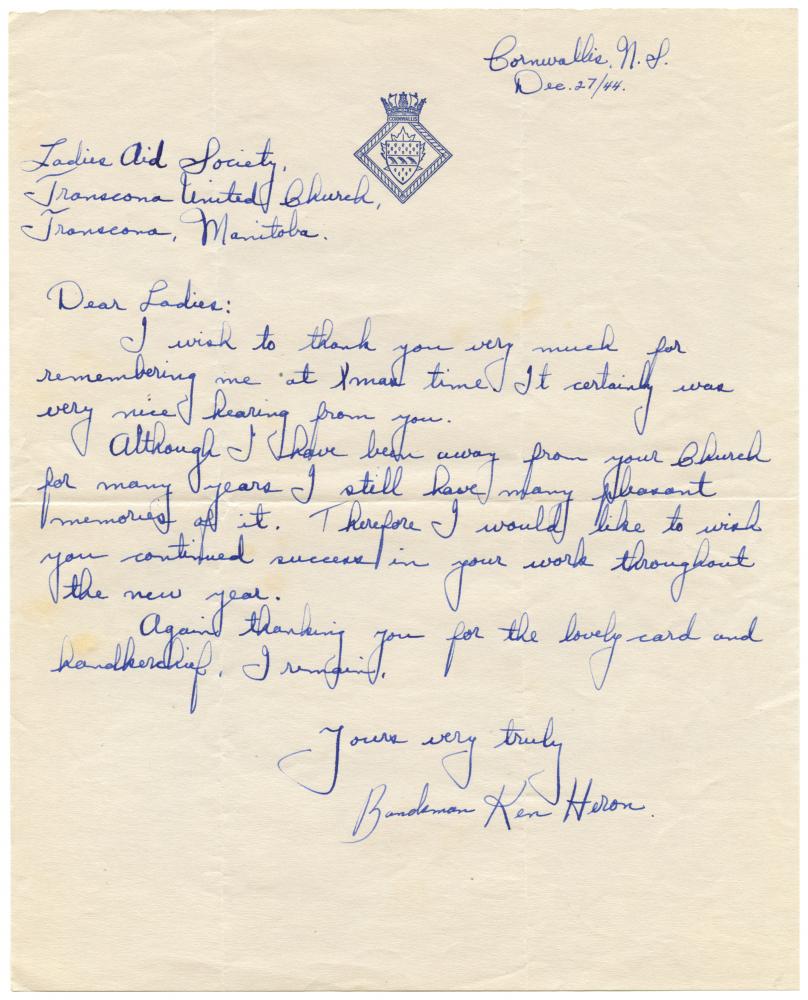 Cornwallis, N.S.
Dec. 27/44.
CORNWALLIS
Ladies Aid Society,
Transcona United Church,
Transcona, Manitoba.
Dear Ladies:
I wish to thank you very much for
remembering me at Xmas time. It certainly was
very nice hearing from you.
Although I have been away from your Church
for many years I still have many pleasant
memories of it. Therefore I would like to wish
you continued success in your work throughout
the new year.
Again thanking you for the lovely card and
handkerchief, I remain,
Yours very truly
Bandsman Ken Heron.